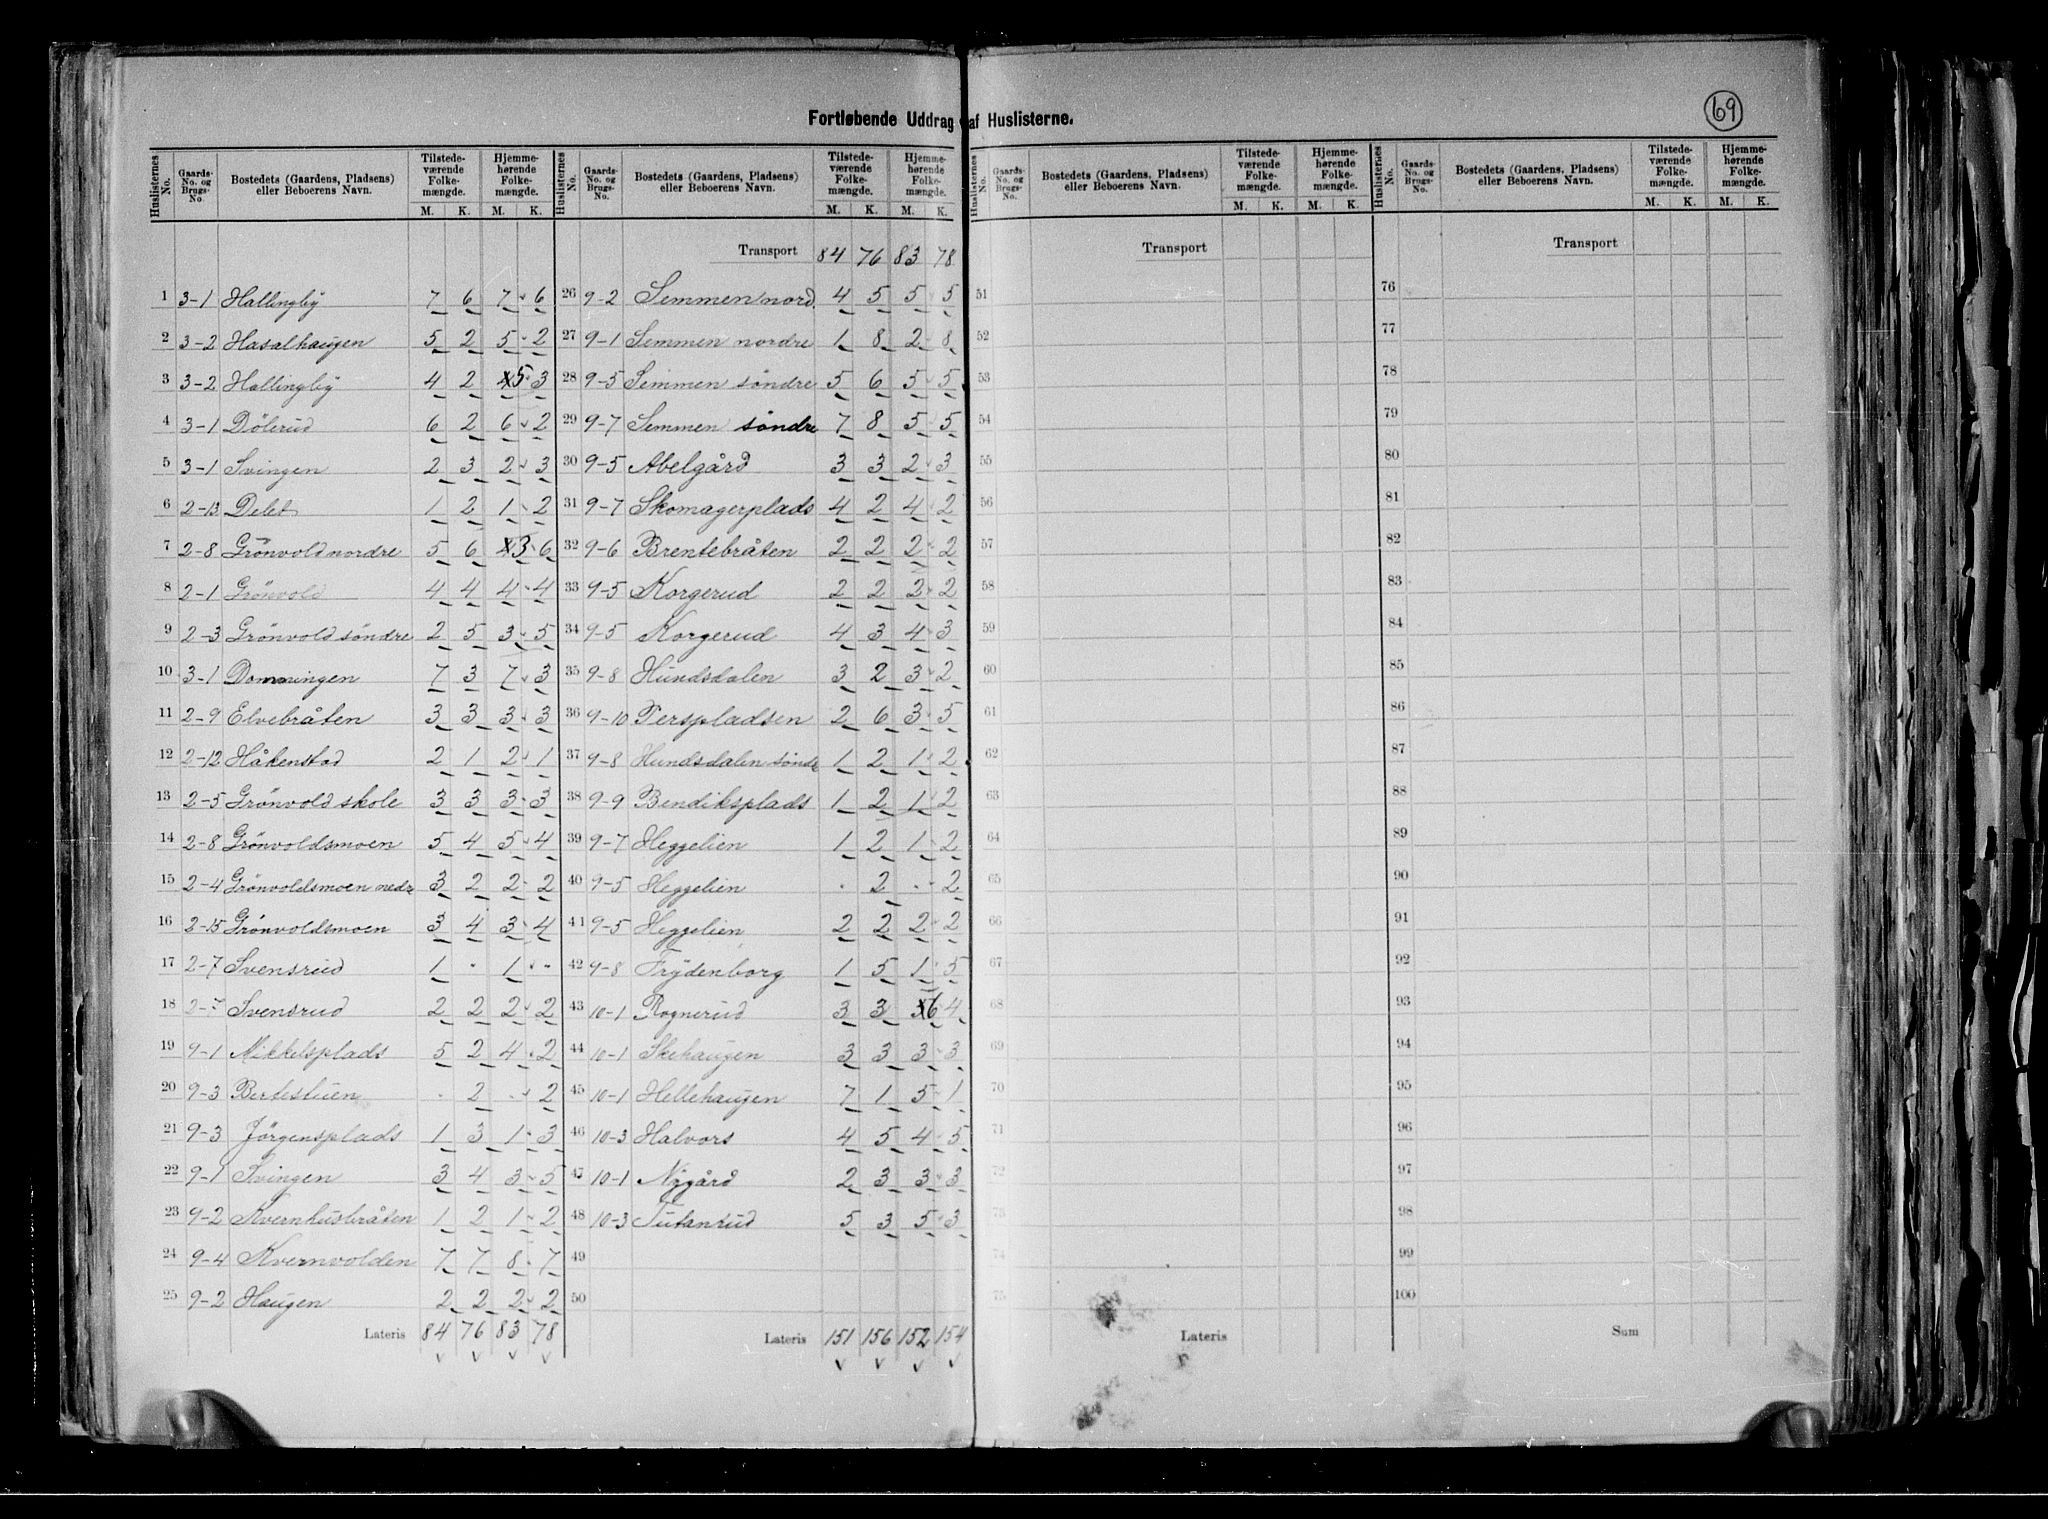 69
Fortløbende Uddrag af Huslisterne.
Huslisternes No. Gaards-No. og Brugs-No. Bostedets (Gaardens, Pladsens) eller Beboerens Navn. Tilstedeværende Folkemængde. M. K. Hjemmehørende Folkemængde. M. K.
1 3-1 Hallingby 7 6 7 6
2 3-2 Hasalhaugen 5 2 5 2
3 3-2 Hallingby 4 2 5 3
4 3-1 Dölerud 6 2 6 2
5 3-1 Svingen 2 3 2 3
6 2-13 Delet 1 2 1 2
7 2-8 Grönvold nordre 5 6 3 6
8 2-1 Grönvold 4 4 4 4
9 2-3 Grönvold söndre 2 5 3 5
10 3-1 Domningen 7 3 7 3
11 2-9 Elvebråten 3 3 3 3
12 2-12 Håkenstad 2 1 2 1
13 2-5 Grönvold skole 3 3 3 3
14 2-8 Grönvoldsmoen 5 4 5 4
15 2-4 Grönvoldsmoen nedr 3 2 2 2
16 2-15 Grönvoldsmoen 3 4 3 4
17 2-7 Svensrud 1 - 1 -
18 2-7 Svensrud 2 2 2 2
19 9-1 Nikkelsplads 5 2 4 2
20 9-3 Bertestuen - 2 - 2
21 9-3 Jörgensplads 1 3 1 3
22 9-1 Svingen 3 4 3 5
23 9-2 Kvernhusbråten 1 2 1 2
24 9-4 Kvernvolden 7 7 8 7
25 9-2 Haugen 2 2 2 2
Lateris 84 76 83 78
Huslisternes No. Gaards-No. og Brugs-No. Bostedets (Gaardens, Pladsens) eller Beboerens Navn. Tilstedeværende Folkemængde. M. K. Hjemmehørende Folkemængde. M. K.
Transport 84 76 83 78
26 9-2 Semmen nord. 4 5 5 5
27 9-1 Semmen nordre 1 8 2 8
28 9-5 Semmen söndre 5 6 5 5
29 9-7 Semmen söndre 7 8 5 5
30 9-5 Abelgård 3 3 2 3
31 9-7 Skomagerplads 4 2 4 2
32 9-6 Brentebråten 2 2 2 2
33 9-5 Korgerud 2 2 2 2
34 9-5 Korgerud 4 3 4 3
35 9-8 Hundsdalen 3 2 3 2
36 9-10 Perspladsen 2 6 3 5
37 9-8 Hundsdalen sönd 1 2 1 2
38 9-9 Bendiksplads 1 2 1 2
39 9-7 Heggelien 1 2 1 2
40 9-5 Heggelien - 2 - 2
41 9-5 Heggelien 2 2 2 2
42 9-8 Frydenborg 1 5 1 5
43 10-1 Rognerud 3 3 6 4
44 10-1 Skehaugen 3 3 3 3
45 10-1 Hellehaugen 7 1 5 1
46 10-3 Halvors 4 5 4 5
47 10-1 Nygård 2 3 3 3
48 10-3 Tutanrud 5 3 5 3
49
50
Lateris 151 156 152 154
Huslisternes No. Gaards-No. og Brugs-No. Bostedets (Gaardens, Pladsens) eller Beboerens Navn. Tilstedeværende Folkemængde. M. K. Hjemmehørende Folkemængde. M. K.
Transport
51
52
53
54
55
56
57
58
59
60
61
62
63
64
65
66
67
68
69
70
71
72
73
74
75
Lateris
Huslisternes No. Gaards-No. og Brugs-No. Bostedets (Gaardens, Pladsens) eller Beboerens Navn. Tilstedeværende Folkemængde. M. K. Hjemmehørende Folkemængde. M. K.
Transport
76
77
78
79
80
81
82
83
84
85
86
87
88
89
90
91
92
93
94
95
96
97
98
99
100
Sum